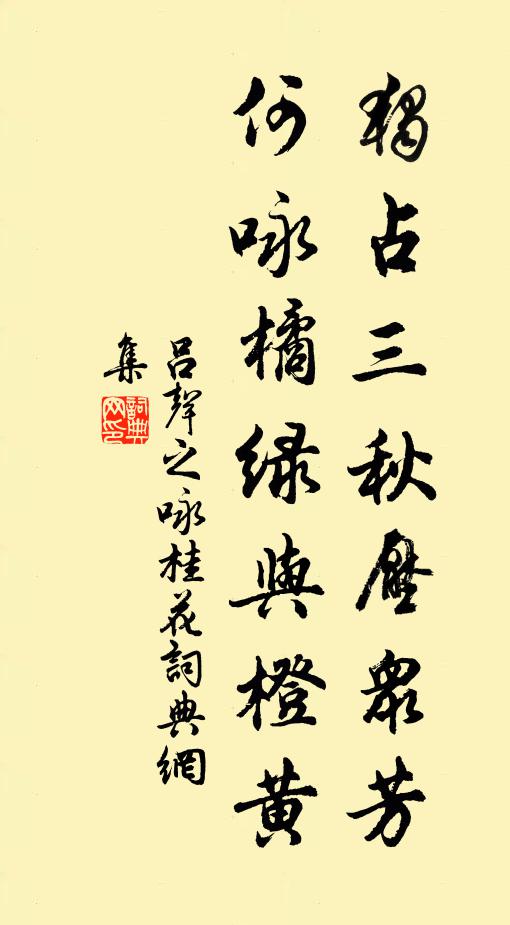 獨占三秋壓眾芳
何咏橘綠與橙黃
呂聲之咏桂花詞典網
集
詞典網印